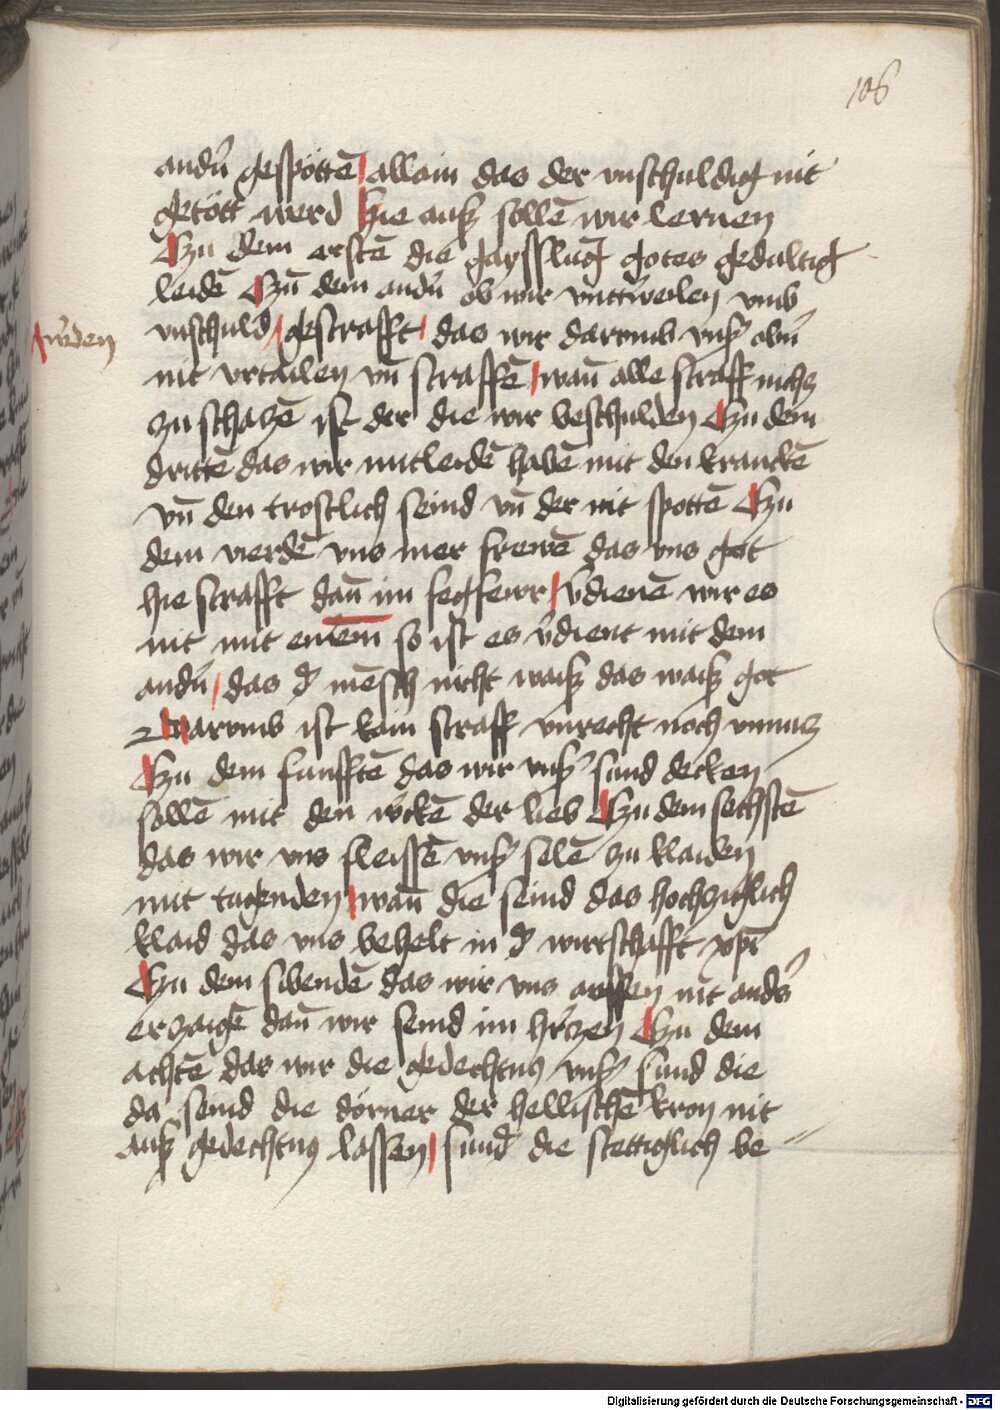 106
andn̄ gespöttē / allain das der vnschuldig nit
getött werd Hie auß sollē wir lernen
Zu dem erstē die gaysslūg gotes gedultig
leidē Zū dem andn̄ ob wir vnttweilen vmb
wrden
vnschuld / gestrafft / das wir darumb vnß obn̄
nit vrtailen vn̄ straffē / wan̄ alle straff nichtz
zu schatzē ist der die wir beschulden Zu dem
drittē das wir mitleidē habē mit den kranckē
vn̄ den trostlich seind vn̄ der nit spottē Zu
dem vierdē vns mer frewē das vns got
hie strafft dan̄ im fegfewr / v̄dienē wir es
nit mit einem so ist es v̄dient mit dem
andn̄ / das d' mēsch nicht waiß das waiß got
Darumb ist kain straff vnrecht noch vnnutz
Zu dem funfftē das wir vnß sund decken
sollē mit den wckē der lieb Zu dem sechstē
das wir vns fleissē vnß selē zu klaiden
mit tugenden / wan̄ die seind das hochzitlich
klaid das vns behelt in d' wirtschafft xp̄i
Zu dem sibendē das wir vns aussen nit anders
erzaigē dan̄ wir seind im hrtzen Zu dem
achtē das wir die gedechtnus vnß sund die
da seind die dörner der hellischē kron nit
auß gedechtnus lassen / sund' die stettiglich be
Digitalisierung gefördert durch die Deutsche Forschungsgemeinschaft - DFG